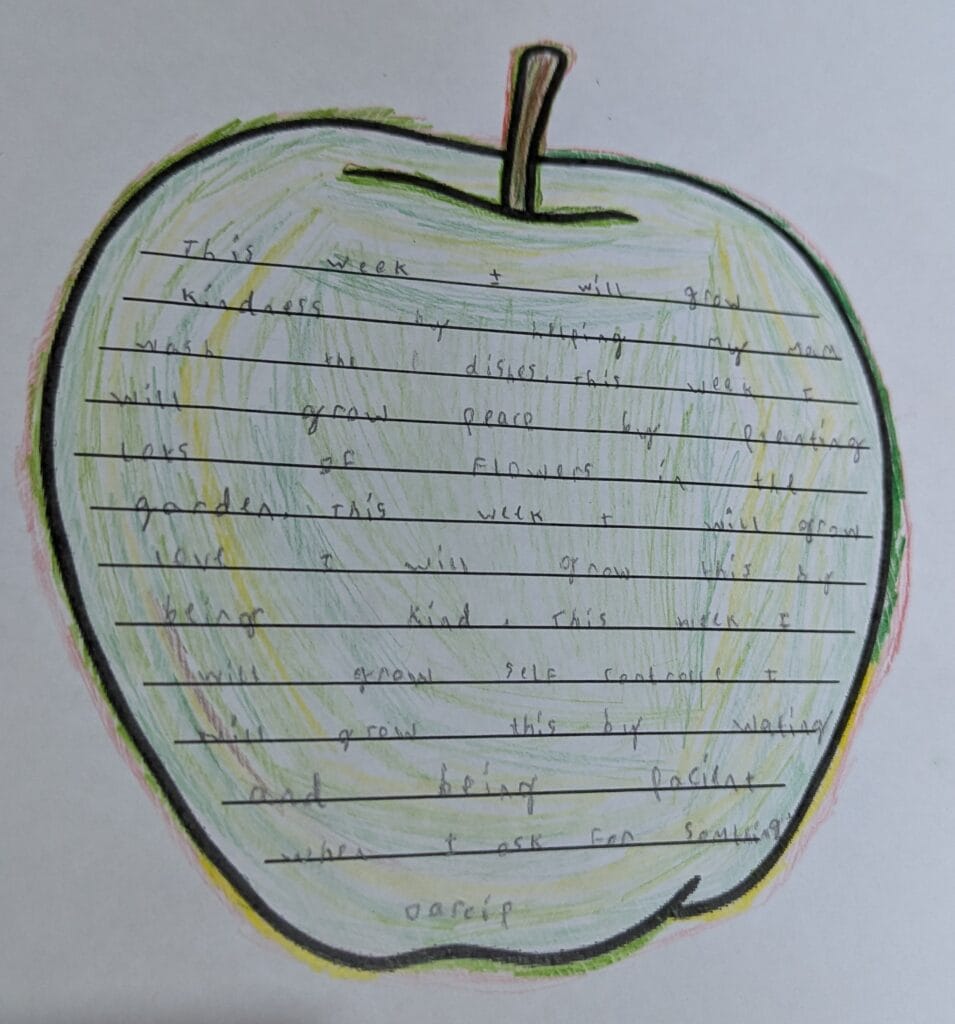 This week I will grow
kindness by helping my mam
wash the dishes. This week I
will grow peace by planting
lots of flowers in the
garden. This week I will grow
love I will grow this by
being kind. This week I
will grow self controle I
will grow this by wating
and being pacient
when I ask for somthing